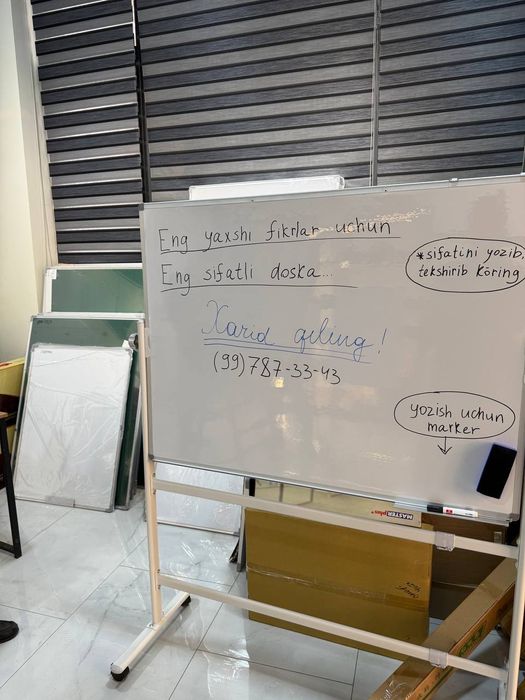 Eng yaxshi fikrlar uchun
Eng sifatli doska...
*sifatini yozib,
tekshirib Ko'ring
Xarid qiling!
(99) 787-33-43
yozish uchun
marker
MASTER plus